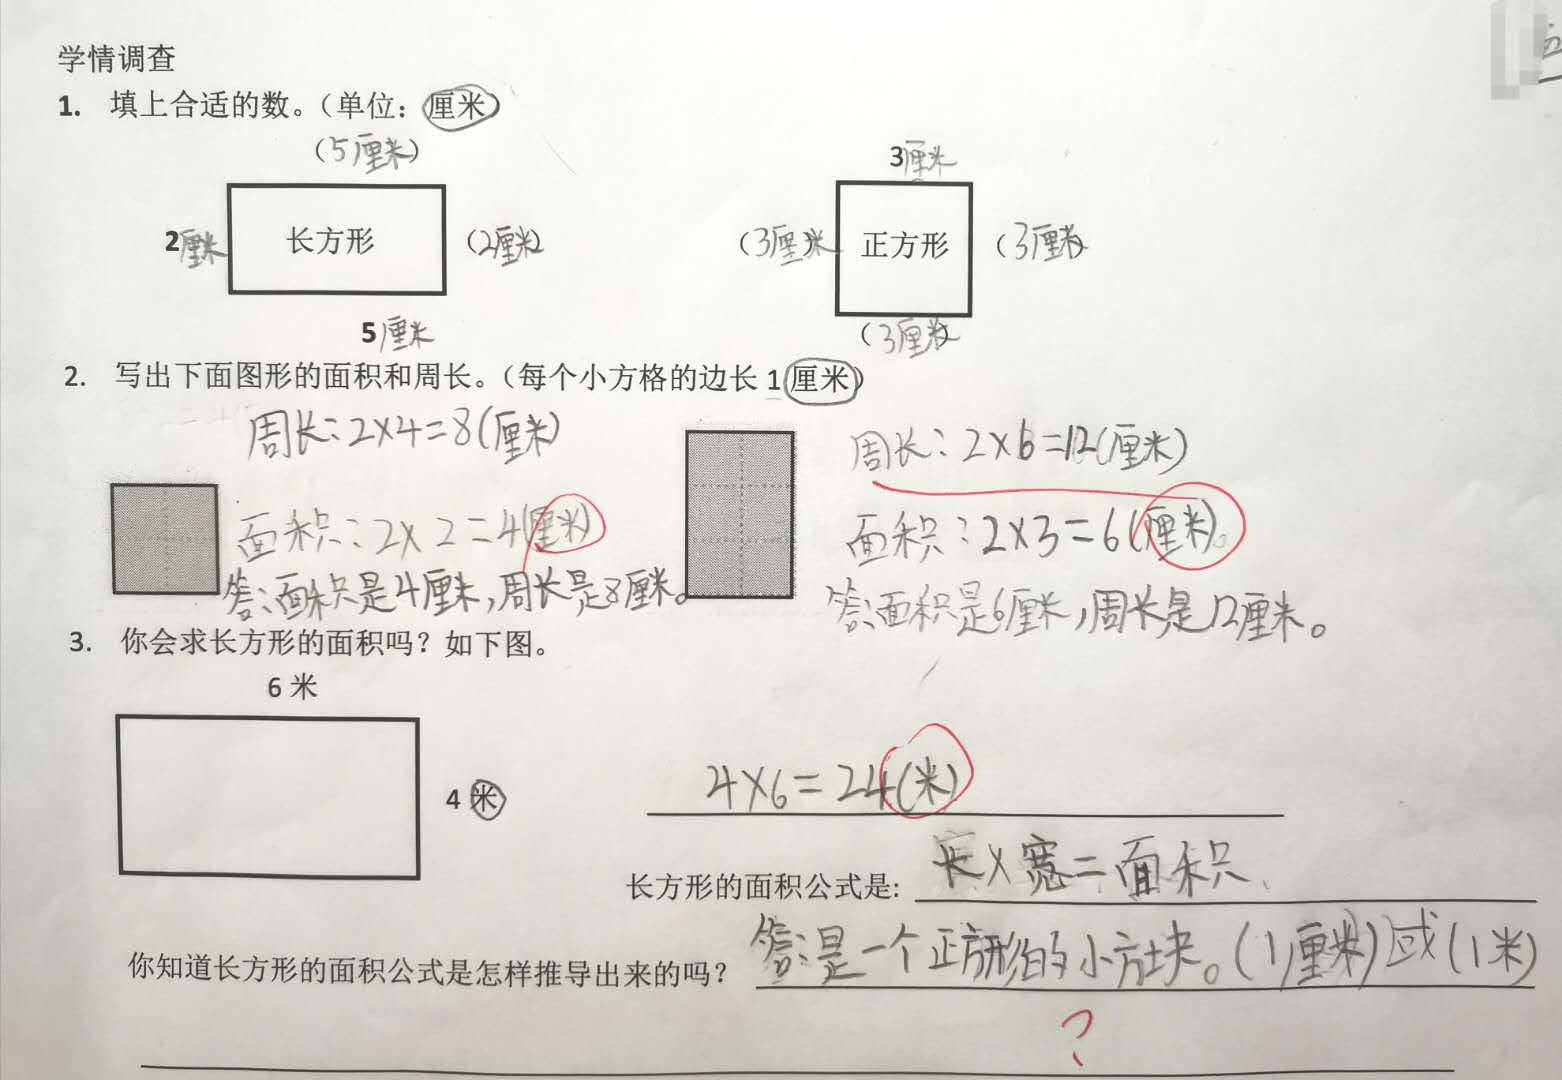 学情调查
1. 填上合适的数。（单位：厘米）
（5厘米） 3厘米
2厘米 长方形 （2厘米） （3厘米） 正方形 （3厘米）
5厘米 （3厘米）
2. 写出下面图形的面积和周长。（每个小方格的边长 1 厘米）
周长：2×4=8(厘米) 周长：2×6=12(厘米)
面积：2×2=4(厘米) 面积：2×3=6(厘米)。
答：面积是4厘米，周长是8厘米。 答：面积是6厘米，周长是12厘米。
3. 你会求长方形的面积吗？如下图。
6 米
4 米 4×6=24(米)
长方形的面积公式是: 长×宽=面积
你知道长方形的面积公式是怎样推导出来的吗？ 答：是一个正方形的小方块。(1厘米)或(1米)
?